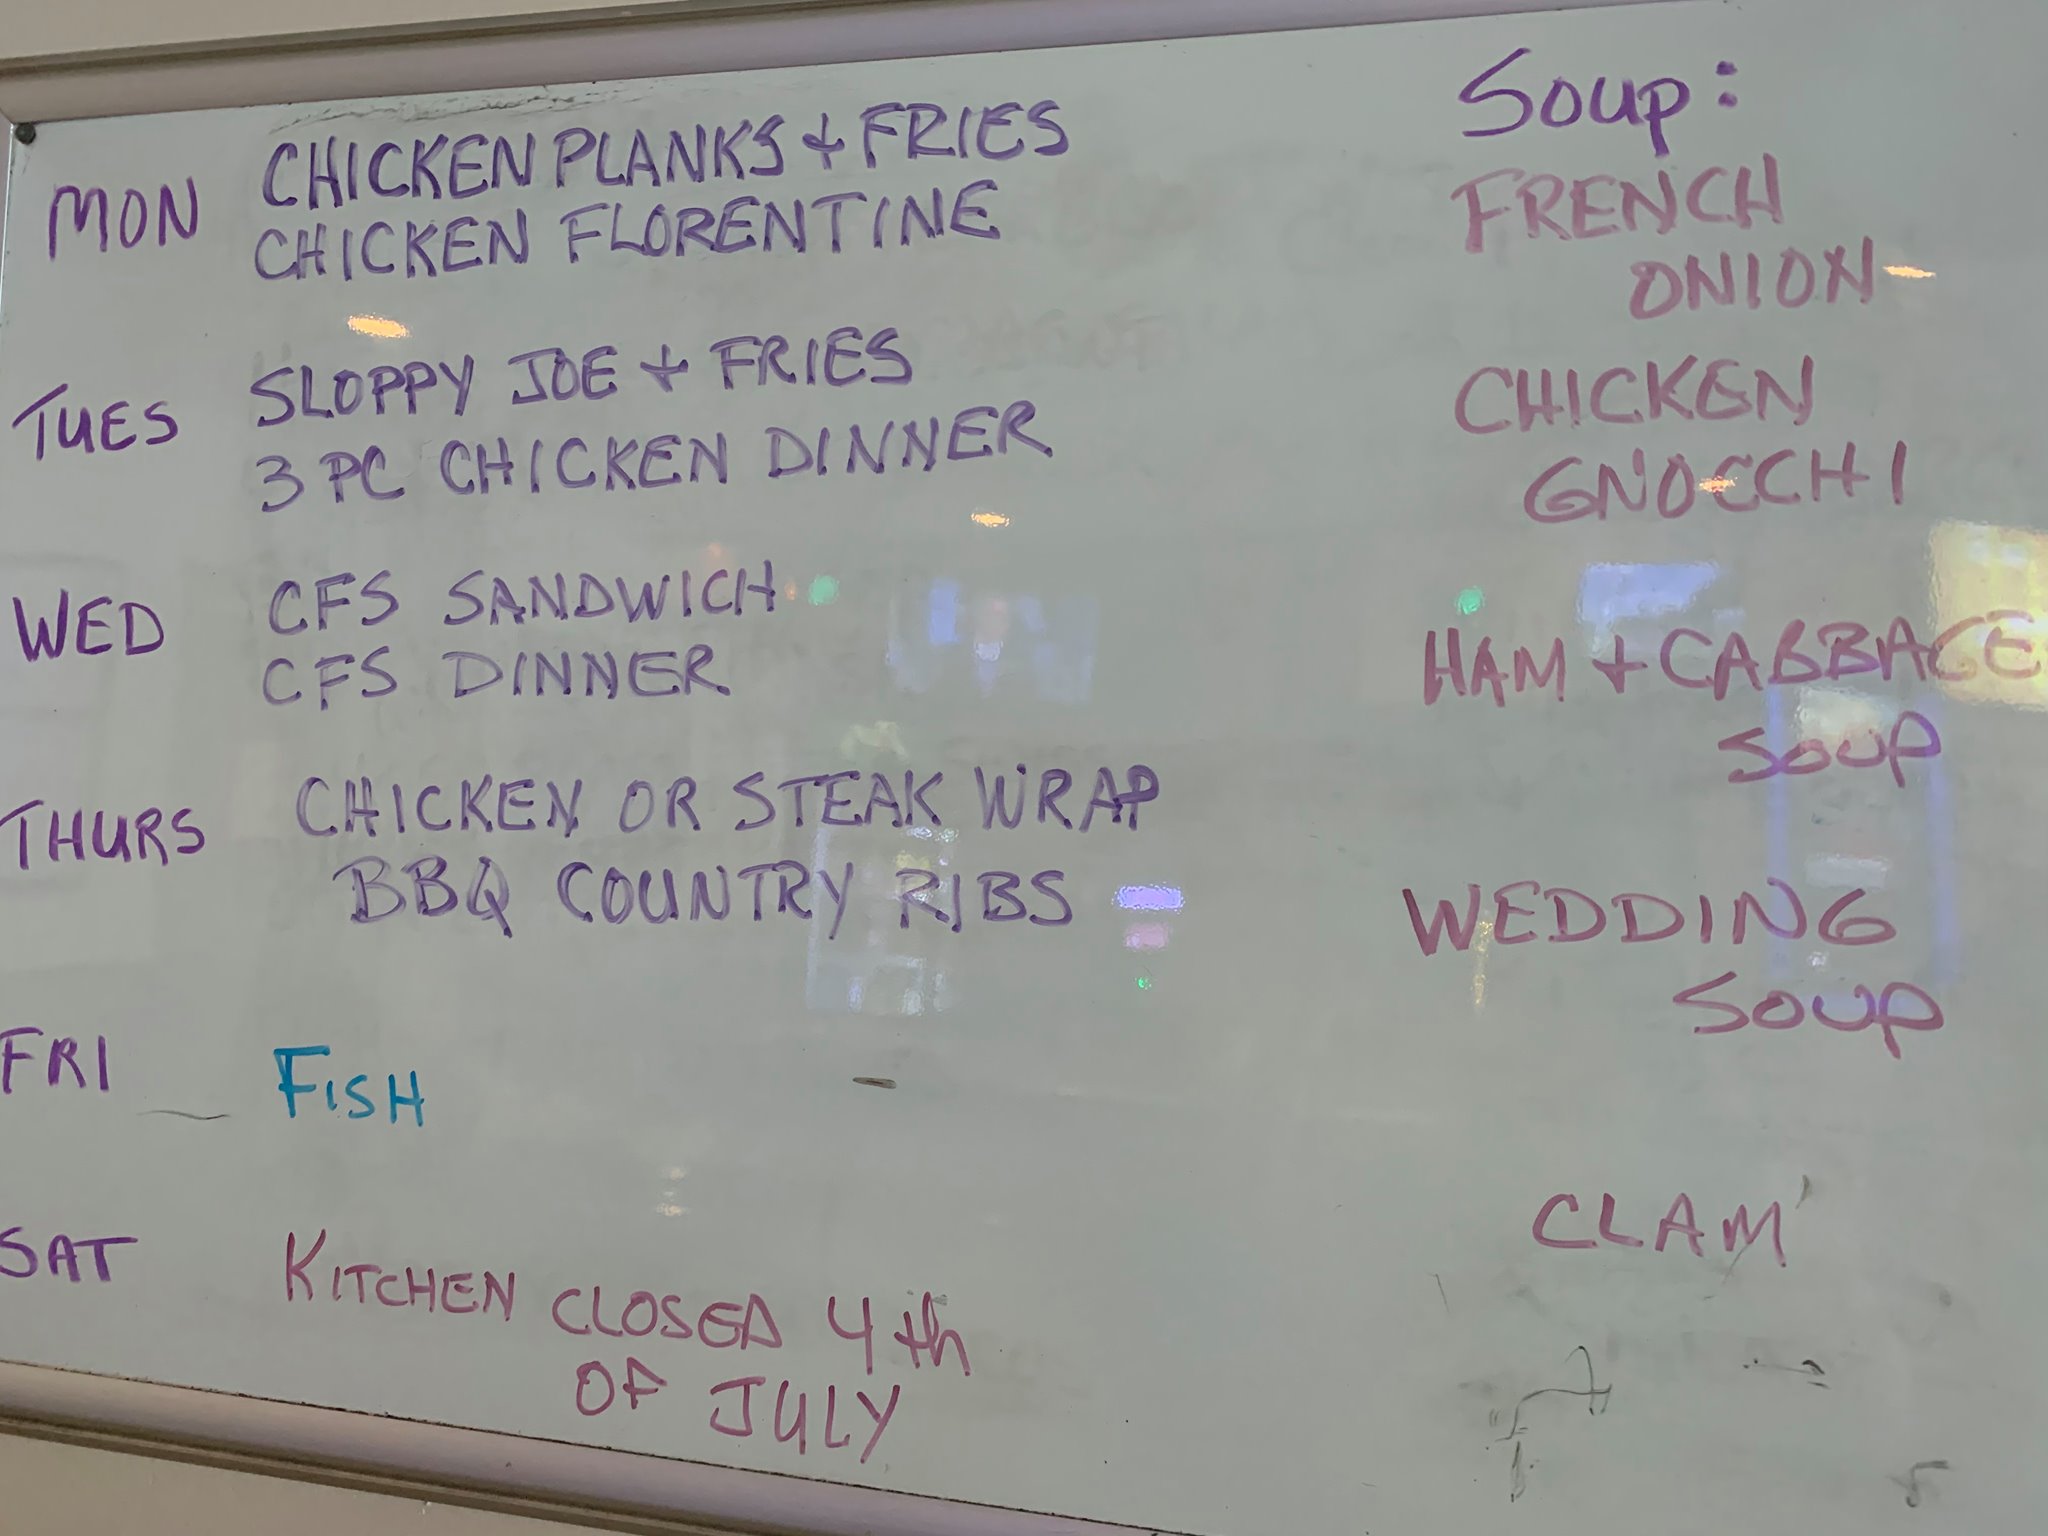 Soup:
MON CHICKEN PLANKS + FRIES
CHICKEN FLORENTINE
FRENCH
ONION
TUES SLOPPY JOE + FRIES
3 PC CHICKEN DINNER
CHICKEN
GNOCCHI
WED CFS SANDWICH
CFS DINNER
HAM + CABBAGE
SOUP
THURS CHICKEN OR STEAK WRAP
BBQ COUNTRY RIBS
WEDDING
SOUP
FRI FISH
CLAM
SAT KITCHEN CLOSED 4th
OF JULY